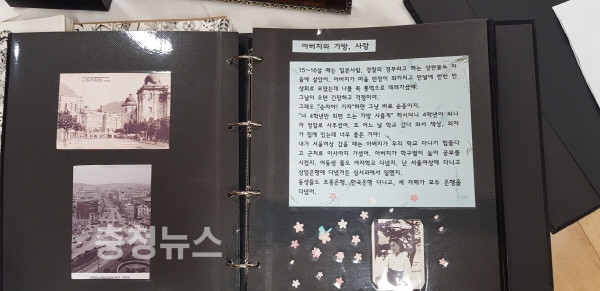 아버지와 가방, 사랑
15~16살 때는 일본사람, 경찰의 경부라고 하는 상관들도 마
을에 살았어. 아버지가 마을 반장이 되가지고 한달에 한번 반
상회로 모였는데 나를 꼭 통역으로 데려가셨어.
그날이 오면 긴장하고 걱정이야.
그래도 "순자야! 가자"하면 그냥 바로 순응이지.
"너 4학년만 되면 드는 가방 사줄게" 하시더니 4학년이 되니
까 정말로 사주셨어. 또 어느 날 학교 갔다 와서 책상, 의자
가 집에 있는데 너무 좋은 거야!
내가 서울여상 갔을 때는 아버지가 우리 학교 다니기 힘들다
고 근처로 이사까지 가셨어. 아버지가 학구열이 높아 공부를
시켰지. 여동생 들도 여자학교 다녔지. 난 서울여상에 다니고
상업은행에 다녔거든 심사과에서 일했지.
동생들도 조흥은행, 한국은행 다니고, 세 자매가 모두 은행을
다녔어.
충청뉴스